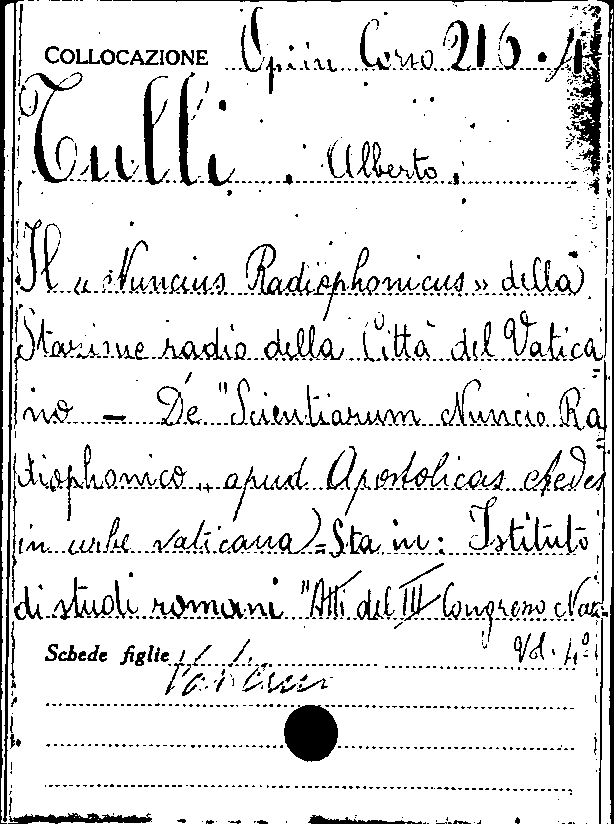 COLLOCAZIONE Opiin Corso 216.4
Tulli. Alberto.
Il « Nuncius Radiophonicus » della
Stazione radio della Città del Vatica
no — De "Scientiarum Nuncio Ra
diophonico„ apud Apostolicas Aedes
in urbe vaticana)=Sta in: Istituto
di studi romani "Atti del III Congresso Naz.
Schede figlie Vol. 4º
Vaticano